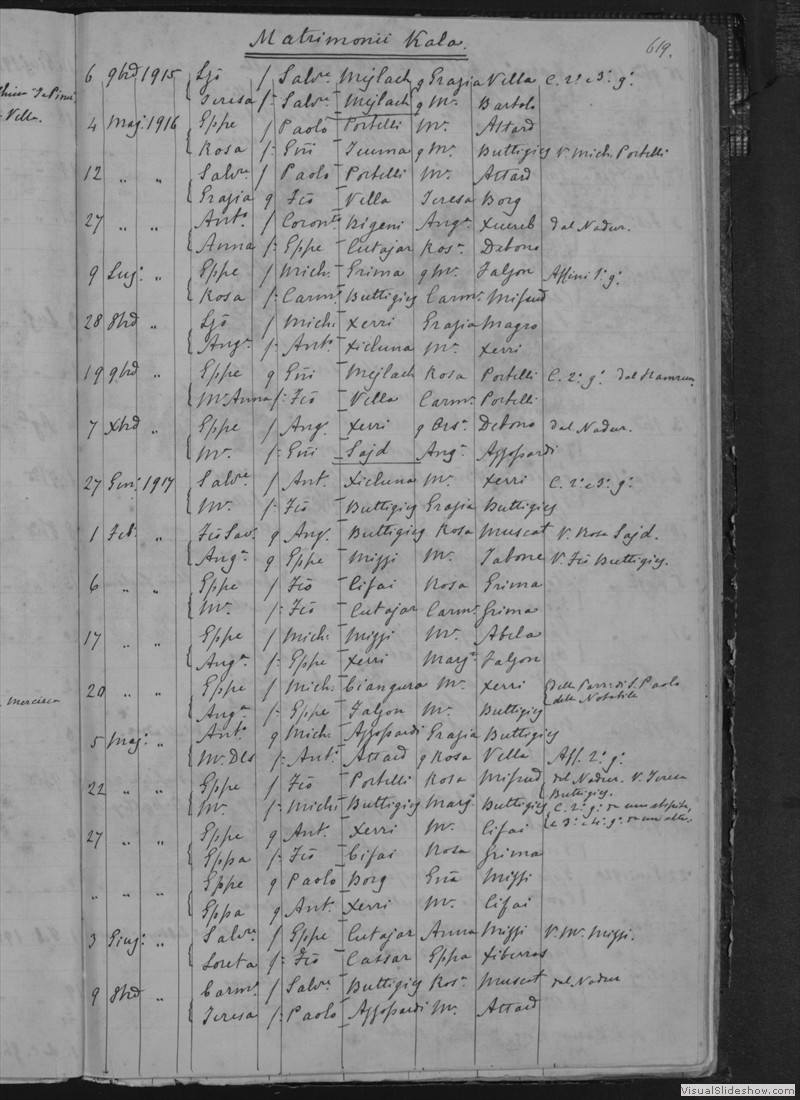 Matrimonii Kala.
619.
6 9bre 1915 Ljò f Salvre Mejlach q Grazia Vella C. 2° e 3° g.
Teresa f: Salvre Mejlach q Ma. Bartolo
- Vella.
4 Maj. 1916 Eppe f Paolo Portelli Ma. Attard
Rosa f: Gio Tcuma q Ma. Buttigieg V. Mich. Portelli
12 " " Salvre f Paolo Portelli Ma. Attard
Grazia q Fco Vella Teresa Borg
27 " " Anto f Coronto Bigeni Anga Xuereb dal Nadur.
Anna f: Eppe Cutajar Rosa Debono
9 Lug. " Eppe f Mich. Grima q Ma. Falzon Affini 1° g.
Rosa f: Carmo Buttigieg Carma Mifsud
28 8bre " Ljò f Mich. Xerri Grazia Magro
Anga f: Anto Xicluna Ma. Xerri
19 9bre " Eppe q Gio Mejlach Rosa Portelli C. 2° g. dal Hamrun
Ma. Anna f: Fco Vella Carma Portelli
7 Xbre " Eppe f Ang. Xerri q Orsa Debono dal Nadur.
Ma. f: Gio Sajd Anga Azzopardi
27 Gen. 1917 Salvre f Ant. Xicluna Ma. Xerri C. 2° e 3° g.
Ma. f: Fco Buttigieg Grazia Buttigieg
1 Feb. " Fco Sav. q Ang. Buttigieg Rosa Muscat V. Rosa Sajd.
Anga q Eppe Mizzi Ma. Tabone V. Fco Buttigieg.
6 " " Eppe f Fco Cifai Rosa Grima
Ma. f: Fco Cutajar Carma Grima
17 " " Eppe f Mich. Mizzi Ma. Abela
Anga f: Eppe Xerri Marja Falzon
20 " " Eppe f Mich. Ciangura Ma. Xerri della Parr. di S. Paolo
della Notabile
Anga f: Eppe Falzon Ma. Buttigieg
5 Maj. " Anto q Mich. Azzopardi Grazia Buttigieg
Ma. Des f: Ant. Attard q Rosa Vella Aff. 2° g.
22 " " Eppe f Fco Portelli Rosa Mifsud dal Nadur. V. Teresa
Buttigieg.
Ma. f: Mich. Buttigieg Marja Buttigieg C. 2° g. da uno stipite,
e 3° e 4° g. da un altro.
27 " " Eppe q Ant. Xerri Ma. Cifai
Eppa f: Fco Cifai Rosa Grima
" " " Eppe q Paolo Borg Gia Mizzi
Eppa q Ant. Xerri Ma. Cifai
3 Giug. " Salvre f Eppe Cutajar Anna Mizzi V. Ma. Mizzi.
Loreta f: Fco Cassar Eppa Xiberras
9 8bre " Carmo f Salvre Buttigieg Rosa Muscat dal Nadur
Teresa f: Paolo Azzopardi Ma. Attard
VisualSlideshow.com